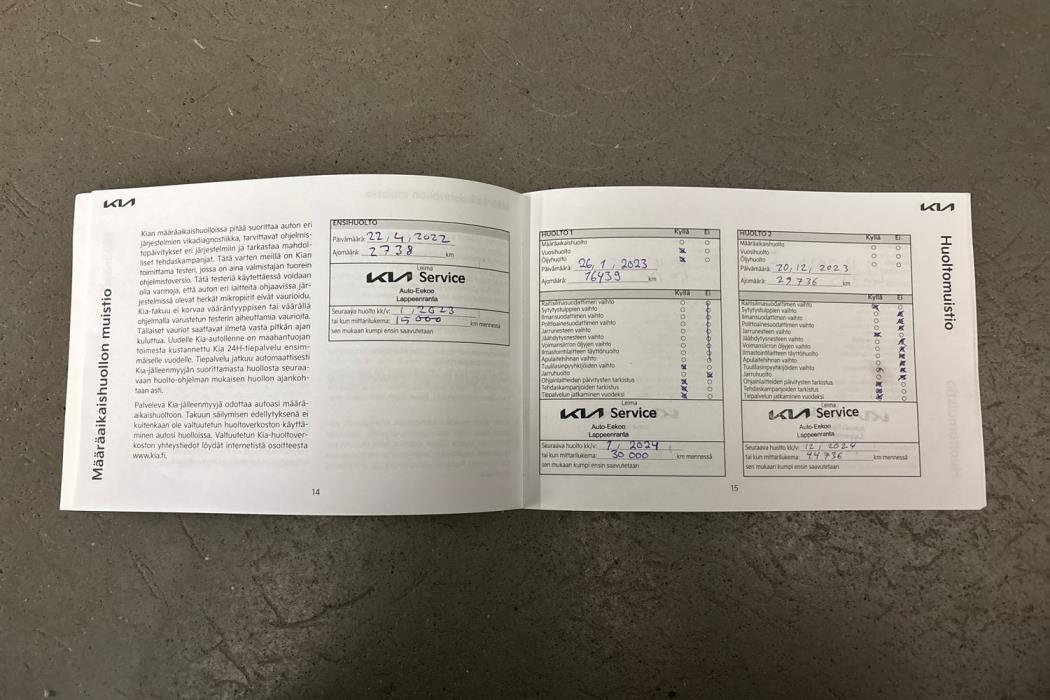 KIA
Määräaikaishuollon muistio
Kian määräaikaishuolloissa pitää suorittaa auton eri
järjestelmien vikadiagnostiikka, tarvittavat ohjelmis-
topäivitykset eri järjestelmiin ja tarkastaa mahdol-
liset tehdaskampanjat. Tätä varten meillä on Kian
toimittama testeri, jossa on aina valmistajan tuorein
ohjelmistoversio. Tätä testeriä käytettäessä voidaan
olla varmoja, että auton eri laitteita ohjaavissa jär-
jestelmissä olevat herkät mikropiirit eivät vaurioidu.
Kia-takuu ei korvaa vääräntyyppisen tai väärällä
ohjelmalla varustetun testerin aiheuttamia vaurioita.
Tällaiset vauriot saattavat ilmetä vasta pitkän ajan
kuluttua. Uudelle Kia-autollenne on maahantuojan
toimesta kustannettu Kia 24H-tiepalvelu ensim-
mäiselle vuodelle. Tiepalvelu jatkuu automaattisesti
Kia-jälleenmyyjän suorittamasta huollosta seuraa-
vaan huolto-ohjelman mukaisen huollon ajankoh-
taan asti.
Palveleva Kia-jälleenmyyjä odottaa autoasi määrä-
aikaishuoltoon. Takuun säilymisen edellytyksenä ei
kuitenkaan ole valtuutetun huoltoverkoston käyttä-
minen autosi huollossa. Valtuutetun Kia-huoltover-
koston yhteystiedot löydät internetistä osoitteesta
www.kia.fi.
ENSIHUOLTO
Päivämäärä: 22,4,2022
Ajomäärä: 2738 km
Leima
KIA Service
Auto-Eekoo
Lappeenranta
Seuraava huolto kk/v: 1,2023
tai kun mittarilukema: 15000 km mennessä
sen mukaan kumpi ensin saavutetaan
14
KIA
Huoltomuistio
HUOLTO 1 Kyllä Ei
Määräaikaishuolto
Vuosihuolto
Öljyhuolto
Päivämäärä: 26,1,2023
Ajomäärä: 16439 km
Kyllä Ei
Raitisilmasuodattimen vaihto
Sytytystulppien vaihto
Ilmansuodattimen vaihto
Polttoainesuodattimen vaihto
Jarrunesteen vaihto
Jäähdytysnesteen vaihto
Voimansiirron öljyjen vaihto
Ilmastointilaitteen täyttöhuolto
Apulaitehihnan vaihto
Tuulilasinpyyhkijöiden vaihto
Jarruhuolto
Ohjainlaitteiden päivitysten tarkistus
Tehdaskampanjoiden tarkistus
Tiepalvelun jatkaminen vuodeksi
Leima
KIA Service
Auto-Eekoo
Lappeenranta
Seuraava huolto kk/v: 1,2024
tai kun mittarilukema: 30 000 km mennessä
sen mukaan kumpi ensin saavutetaan
HUOLTO 2 Kyllä Ei
Määräaikaishuolto
Vuosihuolto
Öljyhuolto
Päivämäärä: 20,12,2023
Ajomäärä: 29736 km
Kyllä Ei
Raitisilmasuodattimen vaihto
Sytytystulppien vaihto
Ilmansuodattimen vaihto
Polttoainesuodattimen vaihto
Jarrunesteen vaihto
Jäähdytysnesteen vaihto
Voimansiirron öljyjen vaihto
Ilmastointilaitteen täyttöhuolto
Apulaitehihnan vaihto
Tuulilasinpyyhkijöiden vaihto
Jarruhuolto
Ohjainlaitteiden päivitysten tarkistus
Tehdaskampanjoiden tarkistus
Tiepalvelun jatkaminen vuodeksi
Leima
KIA Service
Auto-Eekoo
Lappeenranta
Seuraava huolto kk/v: 12,2024
tai kun mittarilukema: 44736 km mennessä
sen mukaan kumpi ensin saavutetaan
15